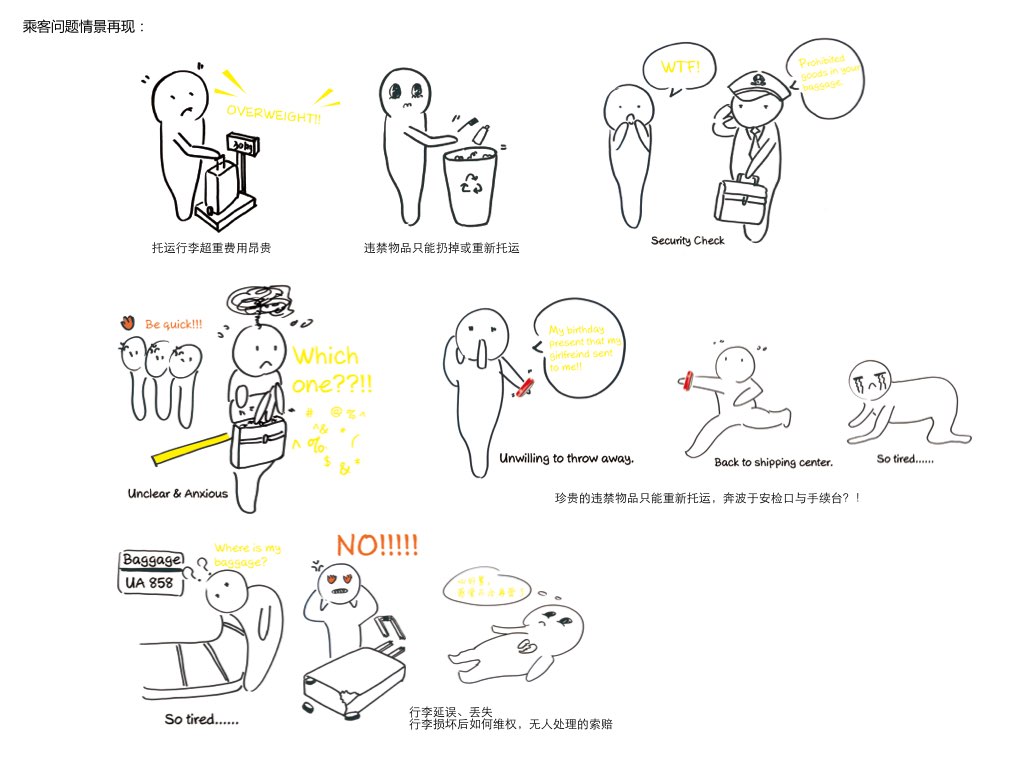 乘客问题情景再现：
OVERWEIGHT!!
托运行李超重费用昂贵
违禁物品只能扔掉或重新托运
WTF!
Prohibited
goods in your
baggage.
Security Check
Be quick!!!
Which
one??!!
Unclear & Anxious
My birthday
present that my
girlfreind sent
to me!!
Unwilling to throw away.
Back to shipping center.
So tired......
珍贵的违禁物品只能重新托运，奔波于安检口与手续台？！
Baggage
UA 858
Where is my
baggage?
So tired......
NO!!!!!
行李延误、丢失
行李损坏后如何维权，无人处理的索赔